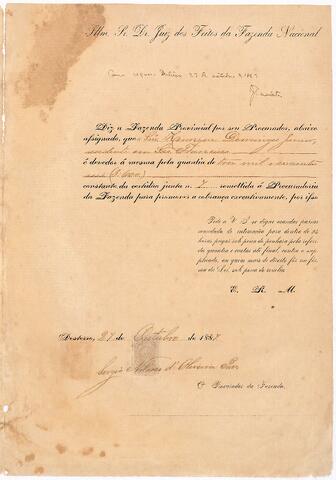 Illm. Sr. Dr. Juiz dos Feitos da Fazenda Nacional
Como requer. Desterro 27 de outubro de 1887
Diz a Fazenda Provincial por seu Procurador, abaixo
assignado, que Domingos
residente em
é devedor á mesma pela quantia de
constante da certidão junta n. 7 remettida á Procuradoria
da Fazenda para promover a cobrança executivamente, por isso
Pede a V. S. se digne mandar passar
mandado de intimação para dentro de 24
horas pagar sob pena de penhora pela referi-
da quantia e custas até final, contra o sup-
plicado, ou quem mais de direito fôr na fór-
ma da Lei, sob pena de revelia.
E. R. M.
Desterro, 27 de Outubro de 1887
Sergio d'Oliveira
O Procurador da Fazenda.